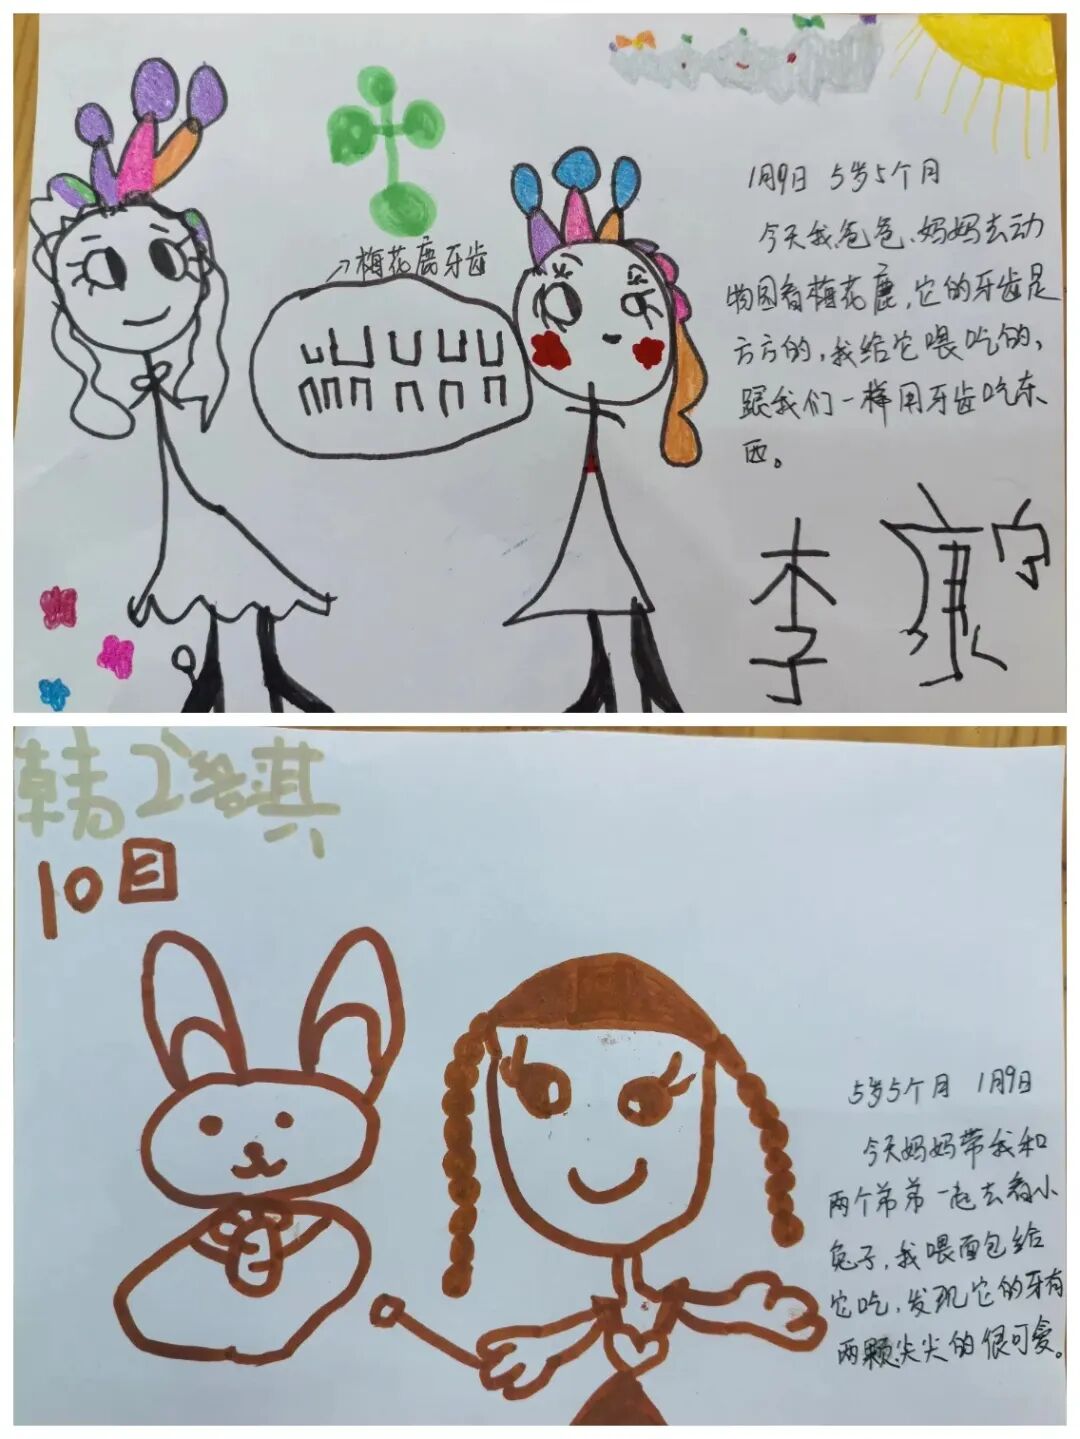 →梅花鹿牙齿
1月9日 5岁5个月
今天我,爸爸、妈妈去动
物园看梅花鹿,它的牙齿是
方方的,我给它喂吃的,
跟我们一样用牙齿吃东
西。
李
韩 淇
10日
5岁5个月 1月9日
今天妈妈带我和
两个弟弟一起去看小
兔子,我喂面包给
它吃,发现它的牙有
两颗尖尖的很可爱。